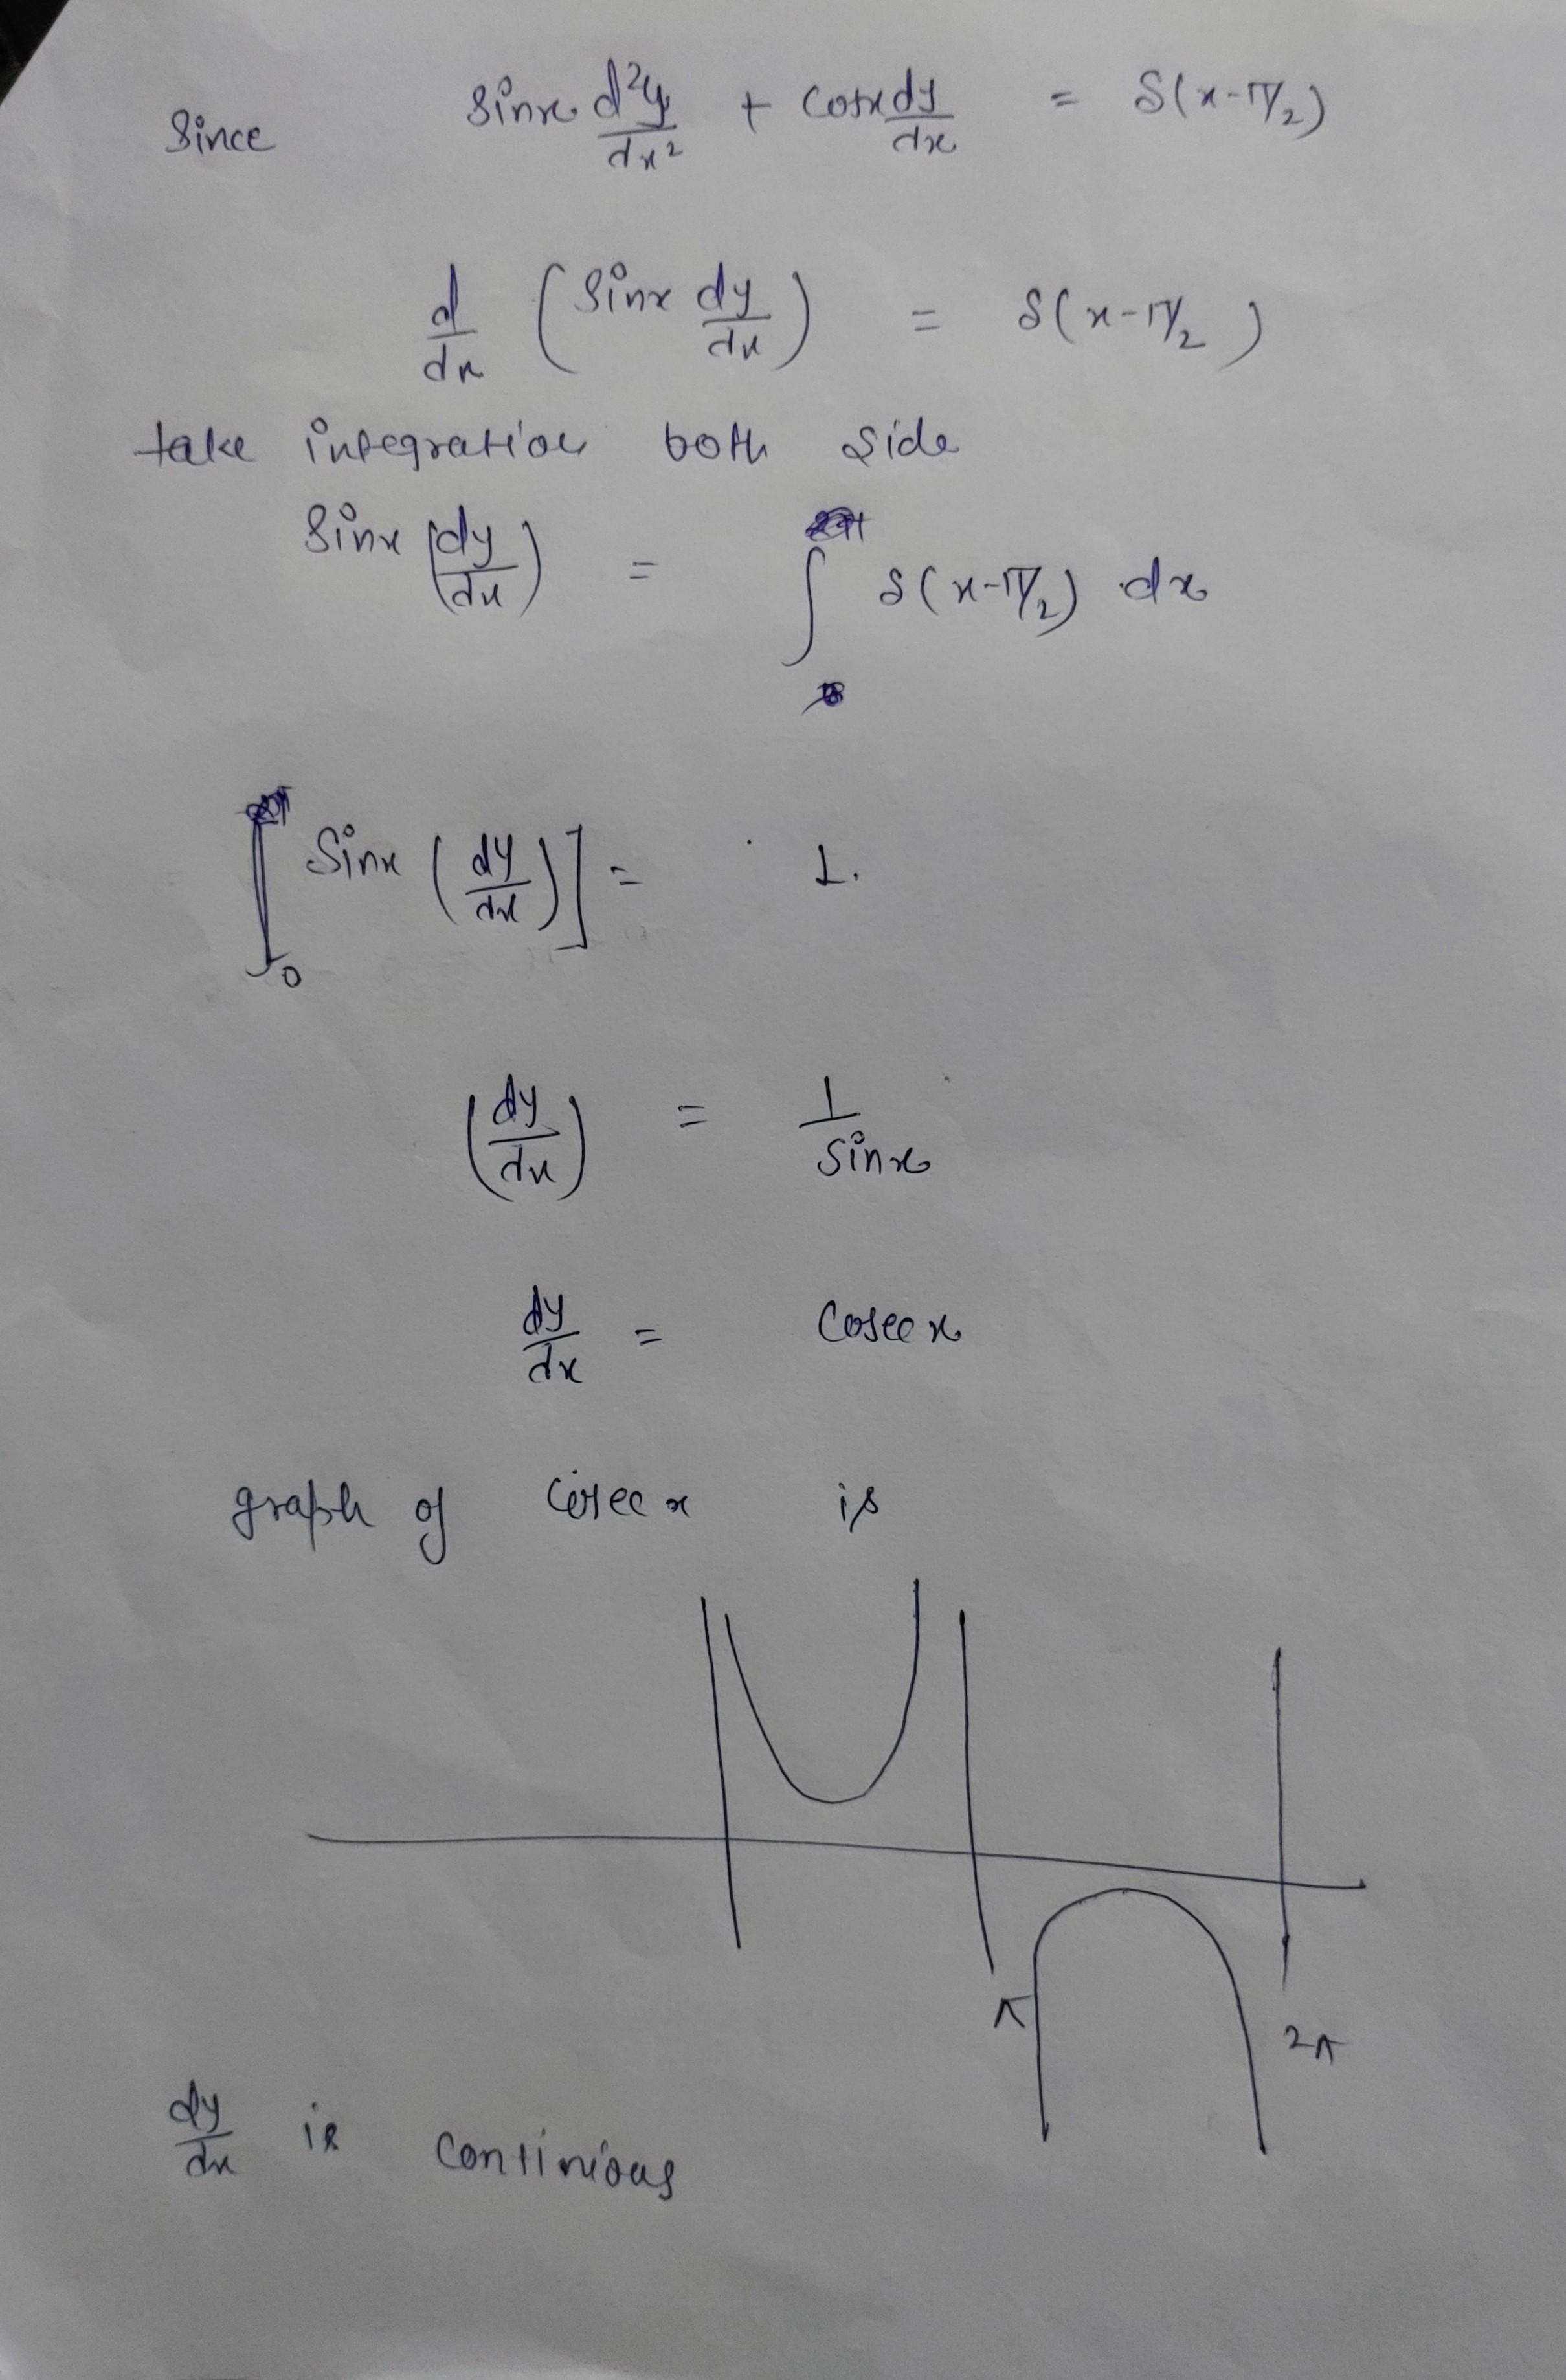 Since sinx d²y/dx² + cosx dy/dx = δ(x-π/2)
d/dx (sinx dy/dx) = δ(x-π/2)
take integration both side
sinx (dy/dx) = ∫ δ(x-π/2) dx
[sinx (dy/dx)] = 1.
0
(dy/dx) = 1/sinx
dy/dx = cosec x
graph of cosec x is
π
2π
dy/dx is continious